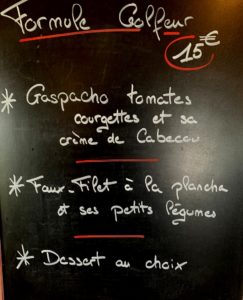 Formule Golfeur
15€
* Gaspacho tomates
courgettes et sa
crème de Cabecou
* Faux-Filet à la plancha
et ses petits légumes
* Dessert au choix